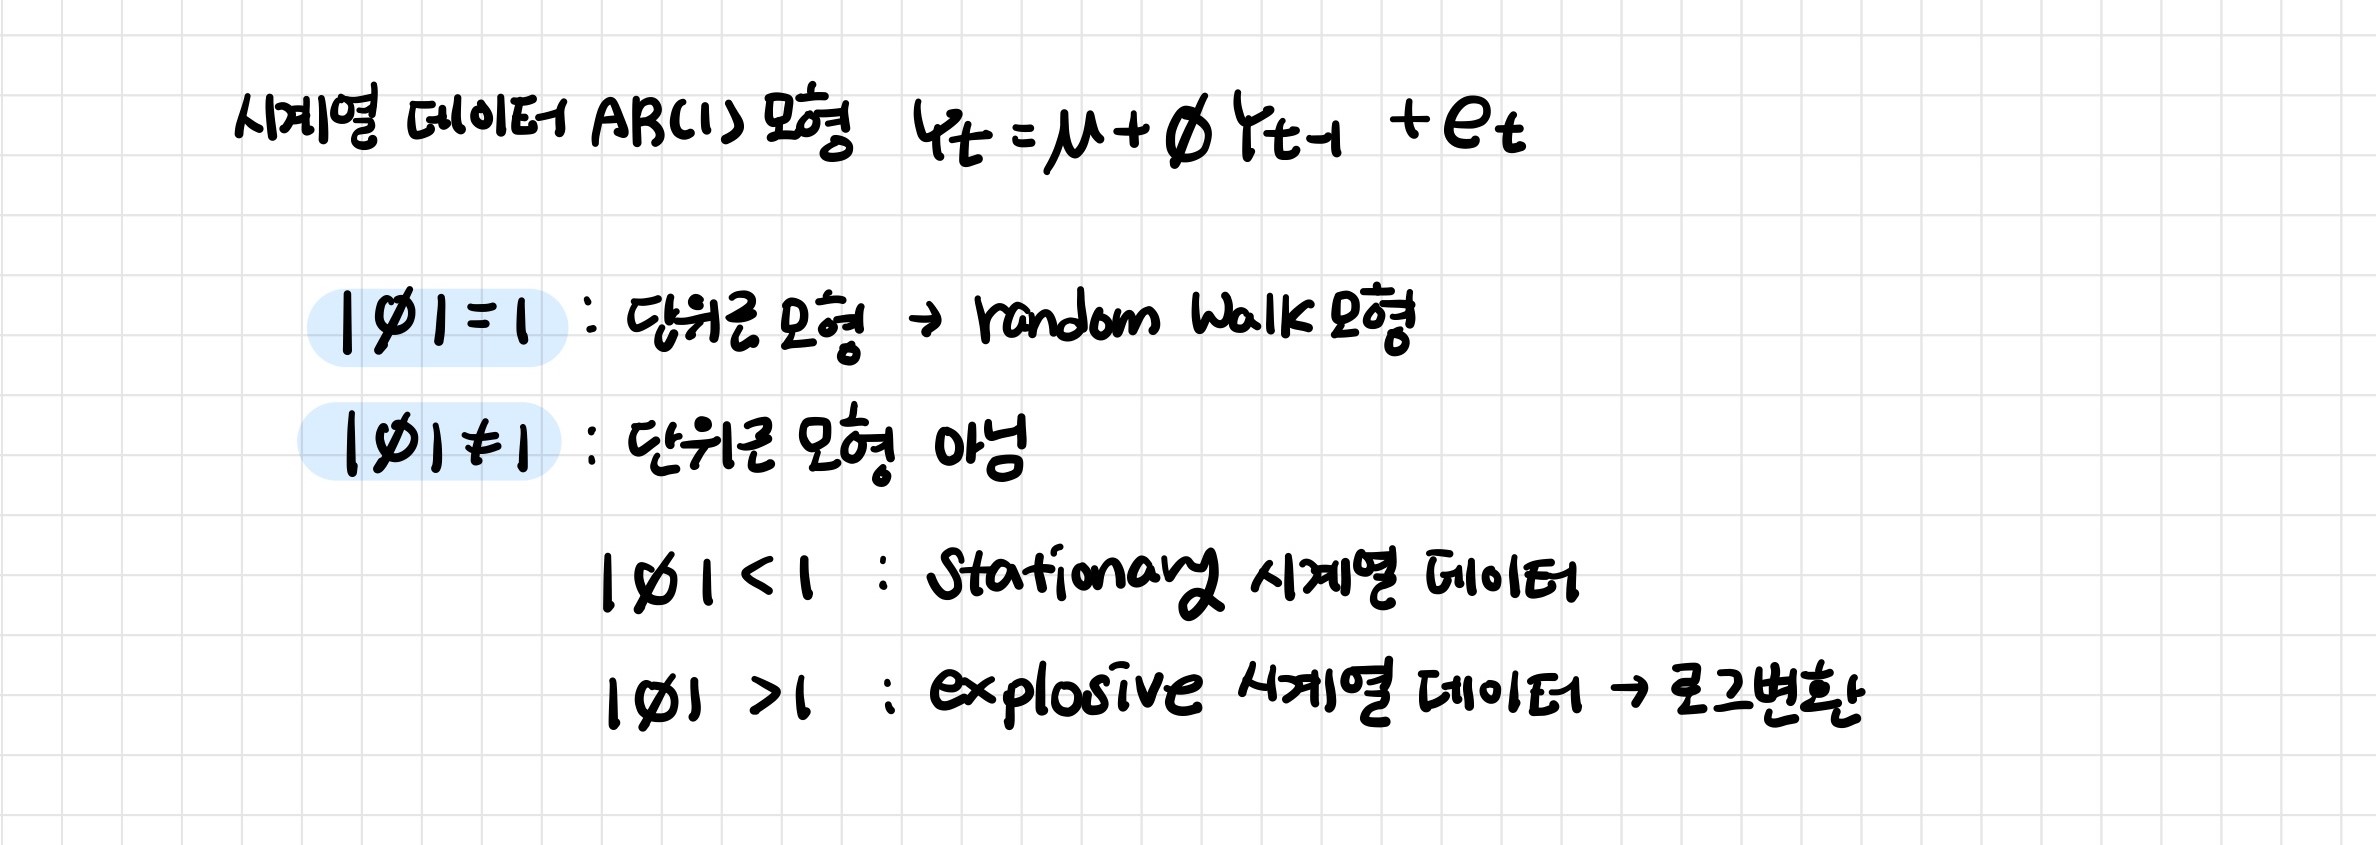 시계열 데이터 AR(1) 모형 Yt = μ + ø Yt-1 + et
|ø| = 1 : 단위근 모형 → random walk 모형
|ø| ≠ 1 : 단위근 모형 아님
|ø| < 1 : Stationary 시계열 데이터
|ø| > 1 : explosive 시계열 데이터 → 로그변환